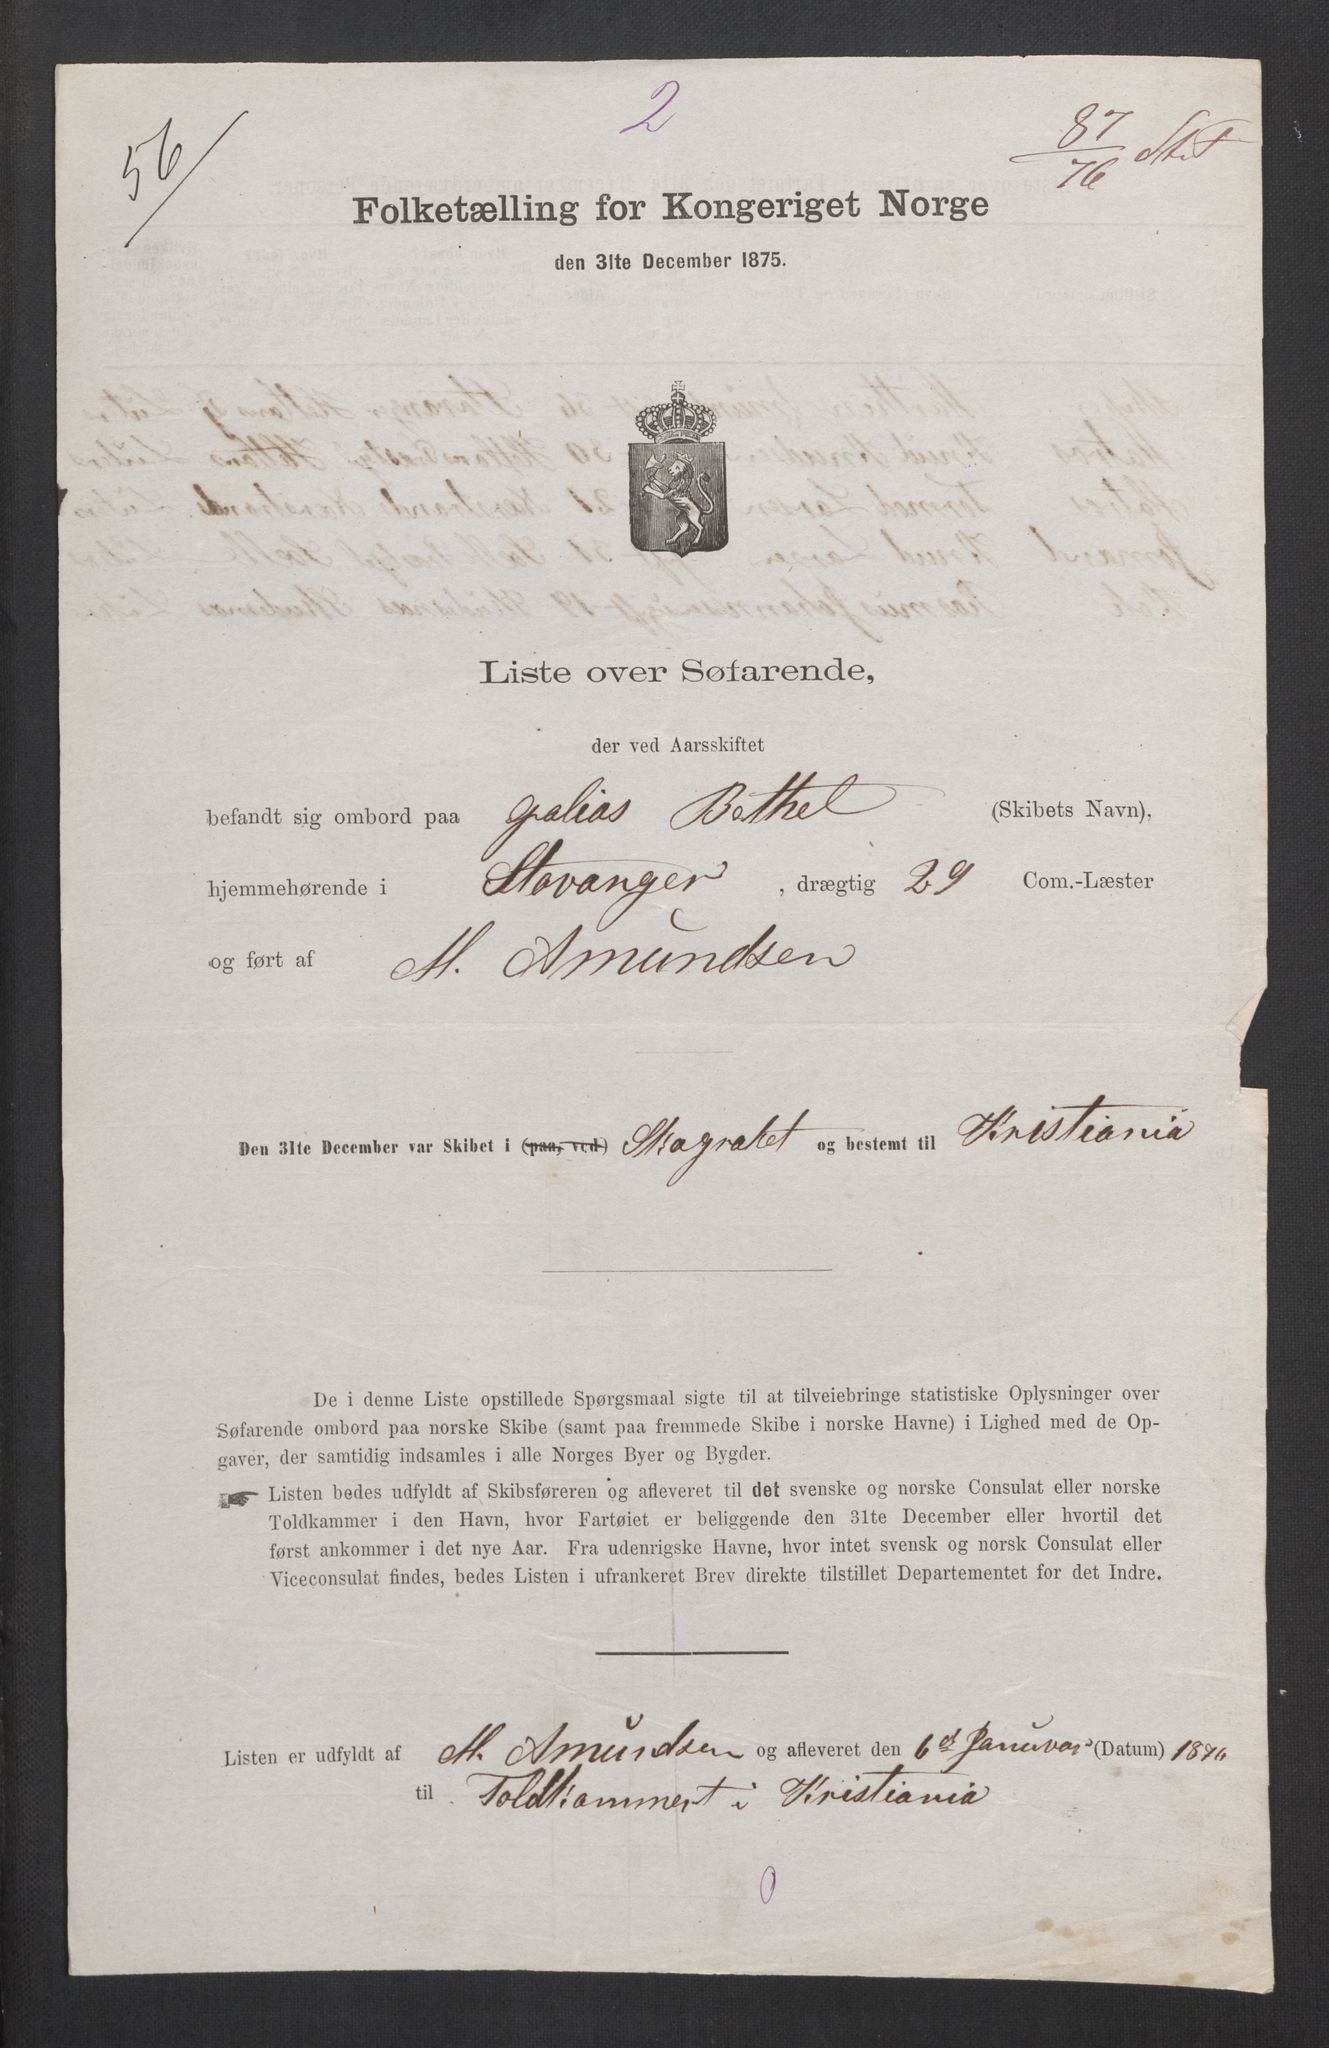 56/
2
87
76
Folketælling for Kongeriget Norge
den 31te December 1875.
Liste over Søfarende,
der ved Aarsskiftet
befandt sig ombord paa galias Bethel (Skibets Navn),
hjemmehørende i Stavanger, drægtig 29 Com.-Læster
og ført af M. Amundsen
Den 31te December var Skibet i (paa, ved) Skagraket og bestemt til Kristiania
De i denne Liste opstillede Spørgsmaal sigte til at tilveiebringe statistiske Oplysninger over
Søfarende ombord paa norske Skibe (samt paa fremmede Skibe i norske Havne) i Lighed med de Op-
gaver, der samtidig indsamles i alle Norges Byer og Bygder.
☛ Listen bedes udfyldt af Skibsføreren og afleveret til det svenske og norske Consulat eller norske
Toldkammer i den Havn, hvor Fartøiet er beliggende den 31te December eller hvortil det
først ankommer i det nye Aar. Fra udenrigske Havne, hvor intet svensk og norsk Consulat eller
Viceconsulat findes, bedes Listen i ufrankeret Brev direkte tilstillet Departementet for det Indre.
Listen er udfyldt af M. Amundsen og afleveret den 6d Januvar (Datum) 1876
til Toldkammert i Kristiania
0